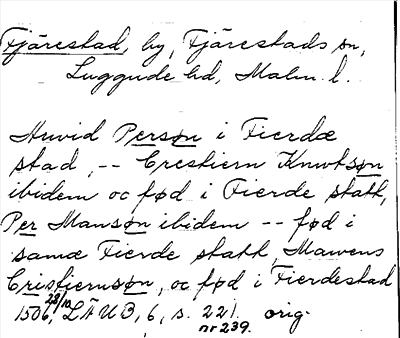 Fjärestad, by, Fjärestads sn,
Luggude hd, Malm. l.
Huvid Persøn i Fierdæ
stad, -- Crestiern Knwtsøn
ibidem oc fød i Fierde stath,
Per Mansøn ibidem -- fød i
samæ Fierde stath, Mawens
Cristiernsøn, oc fød i Fierdestad
1506 23/10, LÄUB, 6, s. 221. orig.
nr 239.